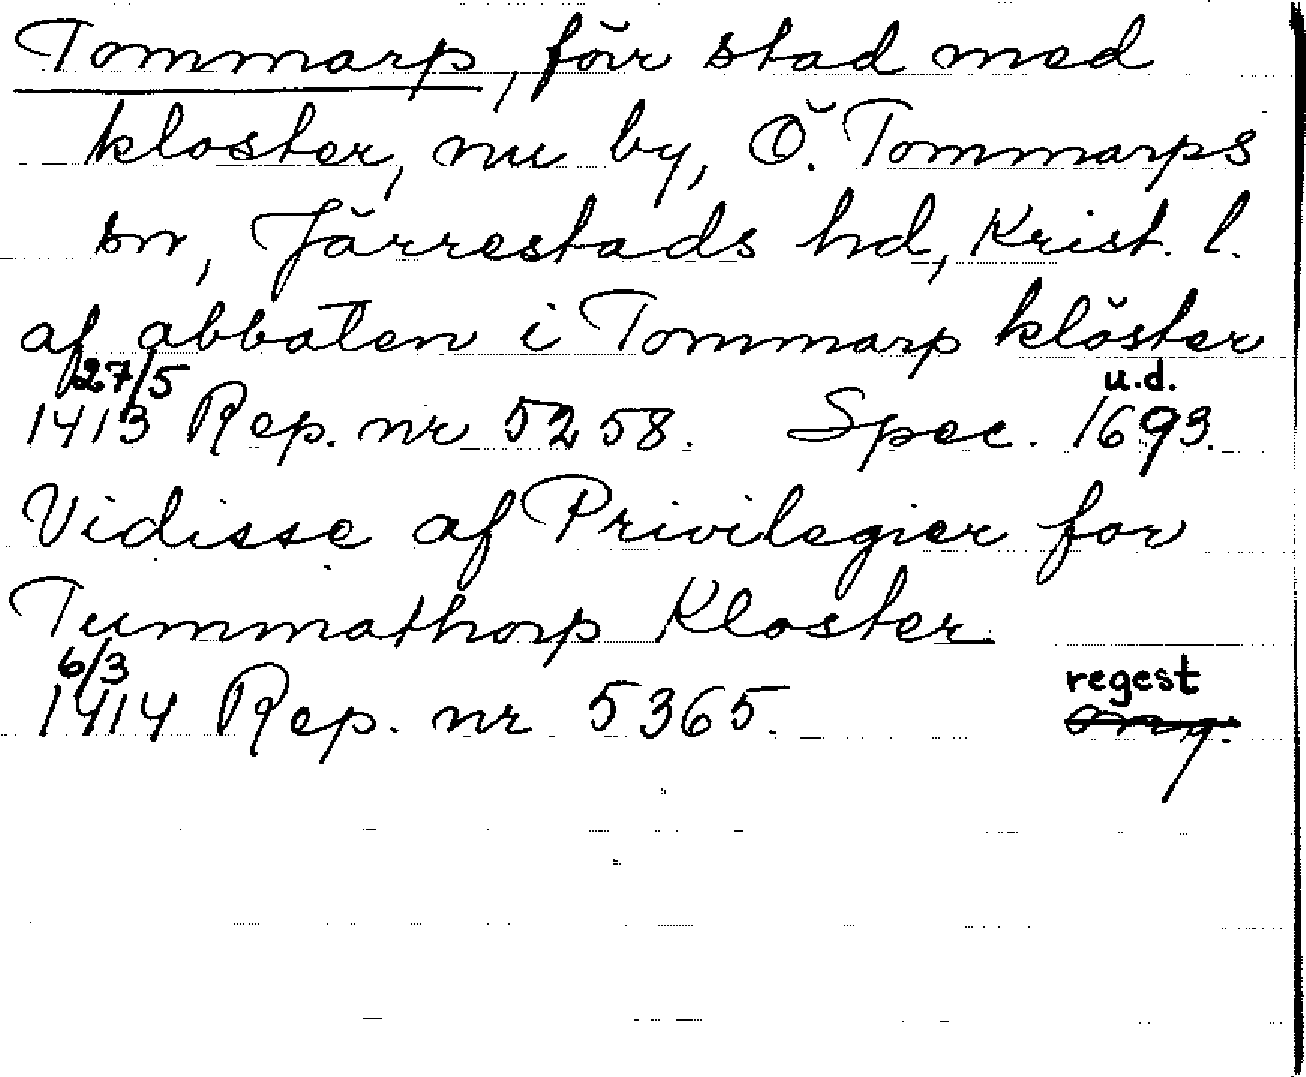 Tommarp, förr stad med
kloster, nu by, Ö. Tommarps
sn, Järrestads hd, Krist. l.
af abbaten i Tommarp klöster
27/5 u.d.
1413 Rep. nr 5258. Spec. 1693.
Vidisse af Privilegier for
Tummathorp Kloster
6/3 regest
1414 Rep. nr 5365.